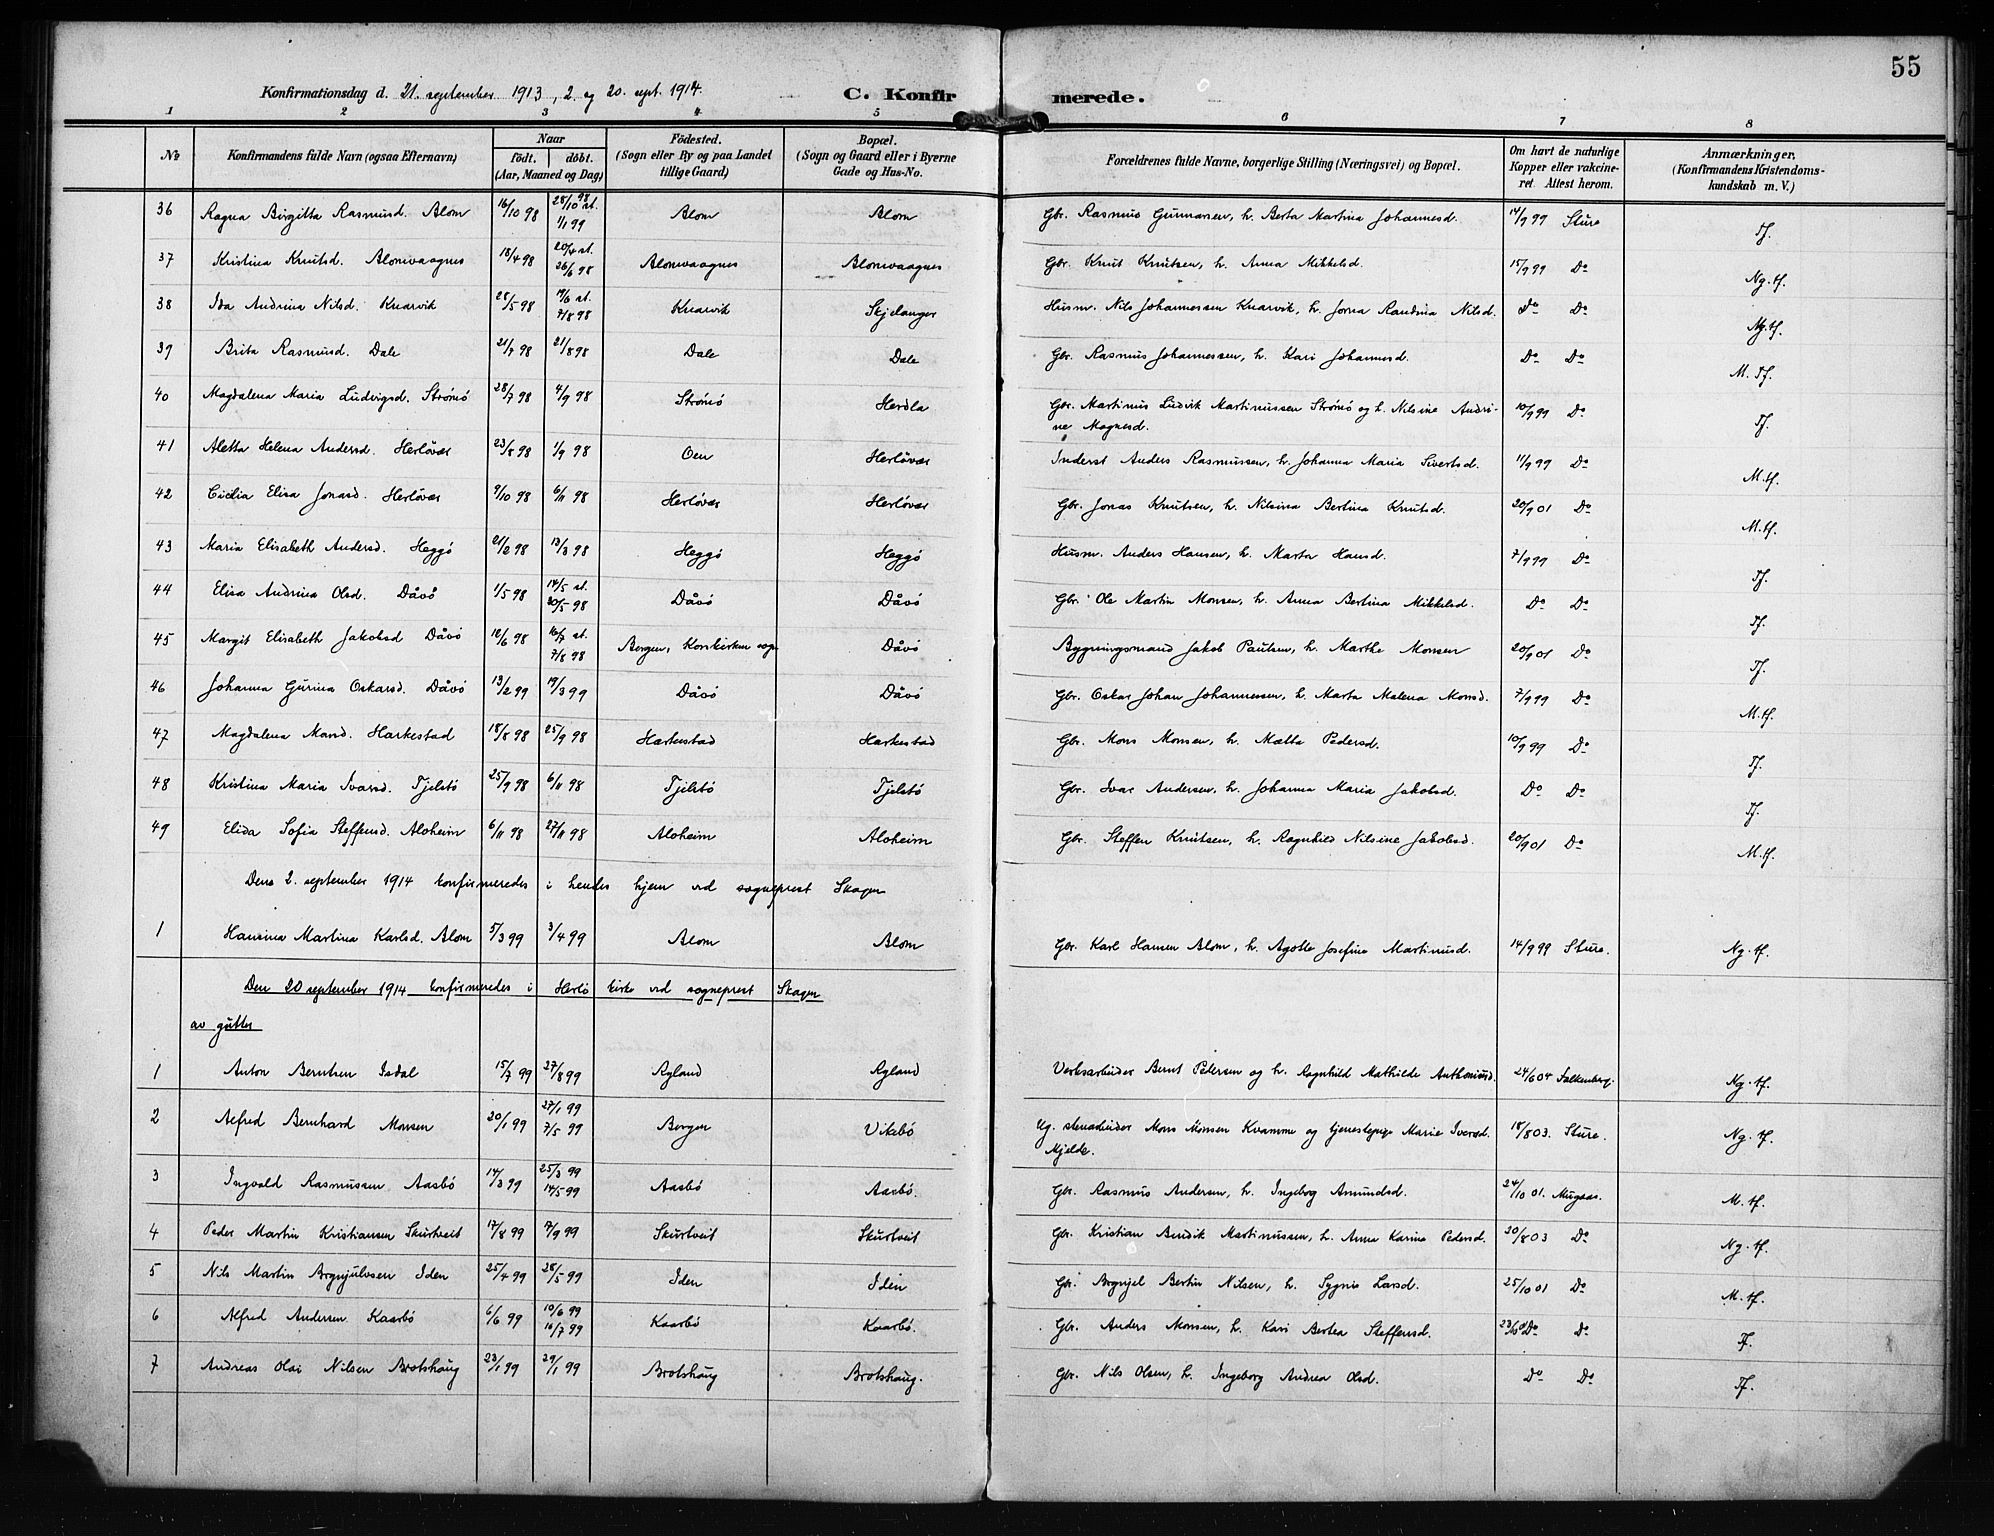 55
Konfirmationsdag d. 21. september 1913, 2. og 20. sept. 1914. C. Konfirmerede.
1 2 3 4 5 6 7 8
No Konfirmandens fulde Navn (ogsaa Efternavn) Naar födt. döbt. (Aar, Maaned og Dag) Födested. (Sogn eller By og paa Landet tillige Gaard) Bopæl. (Sogn og Gaard eller i Byerne Gade og Hus-No. Forældrenes fulde Navne, borgerlige Stilling (Næringsvei) og Bopæl. Om havt de naturlige Kopper eller vakcineret. Attest herom. Anmærkninger, (Konfirmandens Kristendomskundskab m. V.)
36 Ragna Birgitta Rasmusd. Alom 16/10 98 28/10 98 st. 1/1 99 Alom Alom Gbr. Rasmus Gunnarsen, h. Berta Martina Johannesd. 14/9 99 Sture Tf.
37 Kristina Knutsd. Alomvaagnes 18/4 98 20/4 st. 26/6 98 Alomvaagnes Alomvaagnes Gbr. Knut Knutsen, h. Anna Mikkelsd. 15/9 99 Do Ng. tf.
38 Ida Andrina Nilsd. Knarvik 28/5 98 st. 7/8 98 Knarvik Skjelanger Husm. Nils Johannessen Knarvik, h. Jorna Randina Nilsd. Do Do Ng. tf.
39 Brita Rasmusd. Dale 21/7 98 21/8 98 Dale Dale Gbr. Rasmus Johannessen, h. Kari Johannesd. Do Do M. Tf.
40 Magdalena Maria Ludvigsd. Strömö 28/7 98 4/9 98 Strömö Herdla Gbr. Martinus Ludvik Martinussen Strömö og h. Nilsine Andrine Magnesd. 10/9 99 Do Tf.
41 Aletta Helena Andersd. Herlövær 23/8 98 1/9 98 Oen Herlövær Inderst Anders Rasmussen, h. Johanna Maria Sivertsd. 11/9 99 Do M. tf.
42 Cicilia Elisa Jonasd. Herlövær 9/10 98 6/11 98 Herlövær Herlövær Gbr. Jonas Knutsen, h. Nilsina Bertina Knutsd. 20/9 01 Do M. tf.
43 Maria Elisabeth Andersd. Heggö 21/2 98 13/3 98 Heggö Heggö Husm. Anders Hansen, h. Marta Hansd. 7/9 99 Do Tf.
44 Elisa Andrina Olsd. Dåvö 1/5 98 14/5 st. 20/5 98 Dåvö Dåvö Gbr. Ole Martin Monsen, h. Anna Bertina Mikkelsd. Do Do Tf.
45 Margit Elisabeth Jakobsd Dåvö 12/6 98 st. 7/8 98 Bergen, Korskirken sogn Dåvö Bygningsmand Jakob Paulsen, h. Marthe Monsen 20/9 01 Do Tf.
46 Johanna Gurina Oskarsd. Dåvö 13/2 99 19/3 99 Dåvö Dåvö Gbr. Oskar Johan Johannessen, h. Marta Malena Monsd. 7/9 99 Do M. tf.
47 Magdalena Monsd. Harkestad 18/8 98 25/9 98 Harkestad Harkestad Gbr. Mons Monsen, h. Mætta Pedersd. 10/9 99 Do Tf.
48 Kristina Maria Ivarsd. Tjelstö 25/9 98 6/11 98 Tjelstö Tjelstö Gbr. Ivar Andersen, h. Johanna Maria Jakobsd. Do Do Tf.
49 Elida Sofia Steffensd. Aloheim 6/11 98 27/11 98 Aloheim Aloheim Gbr. Steffen Knutsen, h. Ragnhild Nilsine Jakobsd. 20/9 01 Do M. tf.
Den 2. september 1914 konfirmeredes i hendes hjem ved sogneprest Skagen
1 Hansina Martina Karlsd. Alom 5/3 99 3/4 99 Alom Alom Gbr. Karl Hansen Alom, h. Agotte Josefine Martinusd. 14/9 99 Sture. Ng. tf.
Den 20 september 1914 konfirmeredes i Herlö kirke ved sogneprest Skagen
av gutter
1 Anton Berntsen Isdal 15/7 99 27/8 99 Ryland Ryland Verksarbeider Bernt Pedersen og h. Ragnhild Mathilde Anthonisd. 24/6 04 Falkenberg. Ng. tf.
2 Alfred Bernhard Monsen 20/1 99 27/1 99 7/5 99 Bergen Vikebö Ug. stenarbeider Mons Monsen Kvamme og tjenestepige Marie Iversd. Mjelde. 18/8 03. Sture. Ng. tf.
3 Ingvald Rasmussen Aasbö 14/3 99 25/3 99 14/5 99 Aasbö Aasbö. Gbr. Rasmus Andersen, h. Ingeborg Amundsd. 24/10 01. Mugaas. M. tf.
4 Peder Martin Kristiansen Skurtveit 17/8 99 9/99 Skurtveit Skurtveit Gbr. Kristian Bendik Martinussen, h. Anna Karina Pedersd. 20/8 03 Do Ng. tf.
5 Nils Martin Brynjulvsen Iden 25/4 99 28/5 99 Iden Iden Gbr. Brynjel Bertin Nilsen, h. Sygni Larsd. 25/10 01 Do M. tf.
6 Alfred Andersen Kaarbö 6/6 99 10/6 99 16/7 99 Kaarbö Kaarbö. Gbr. Anders Monsen, h. Kari Bertea Steffensd. Do Do Tf.
7 Andreas Olai Nilsen Brotshaug 23/1 99 29/1 99 Brotshaug Brotshaug. Gbr. Nils Olsen, h. Ingeborg Andrea Olsd. Do Do Tf.